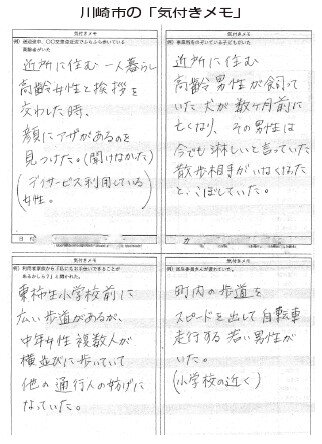 川崎市の「気付きメモ」
気付きメモ
高齢者がいた
近所に住む一人暮らし
高齢女性と挨拶を
交わした時、
顔にアザがあるのを
見つけた。(聞けなかた)
(デイサービス利用している
女性。
日付
気付きメモ
近所に住む
高齢男性が飼って
いた犬が数ヶ月前に
亡くなり、その男性は
今でも淋しいと言っていた
散歩相手がいなくなった
と、こぼしていた。
気付きメモ
例)利用者家族から「私にもお手伝いできることが
あるかしら?」と聞かれた。
東柿生小学校前に
広い歩道があるが、
中年女性複数人が
横並びに歩いていて
他の通行人の妨げに
なっていた。
気付きメモ
町内の歩道を
スピードを出して自転車
走行する若い男性が
いた。
(小学校の近く)